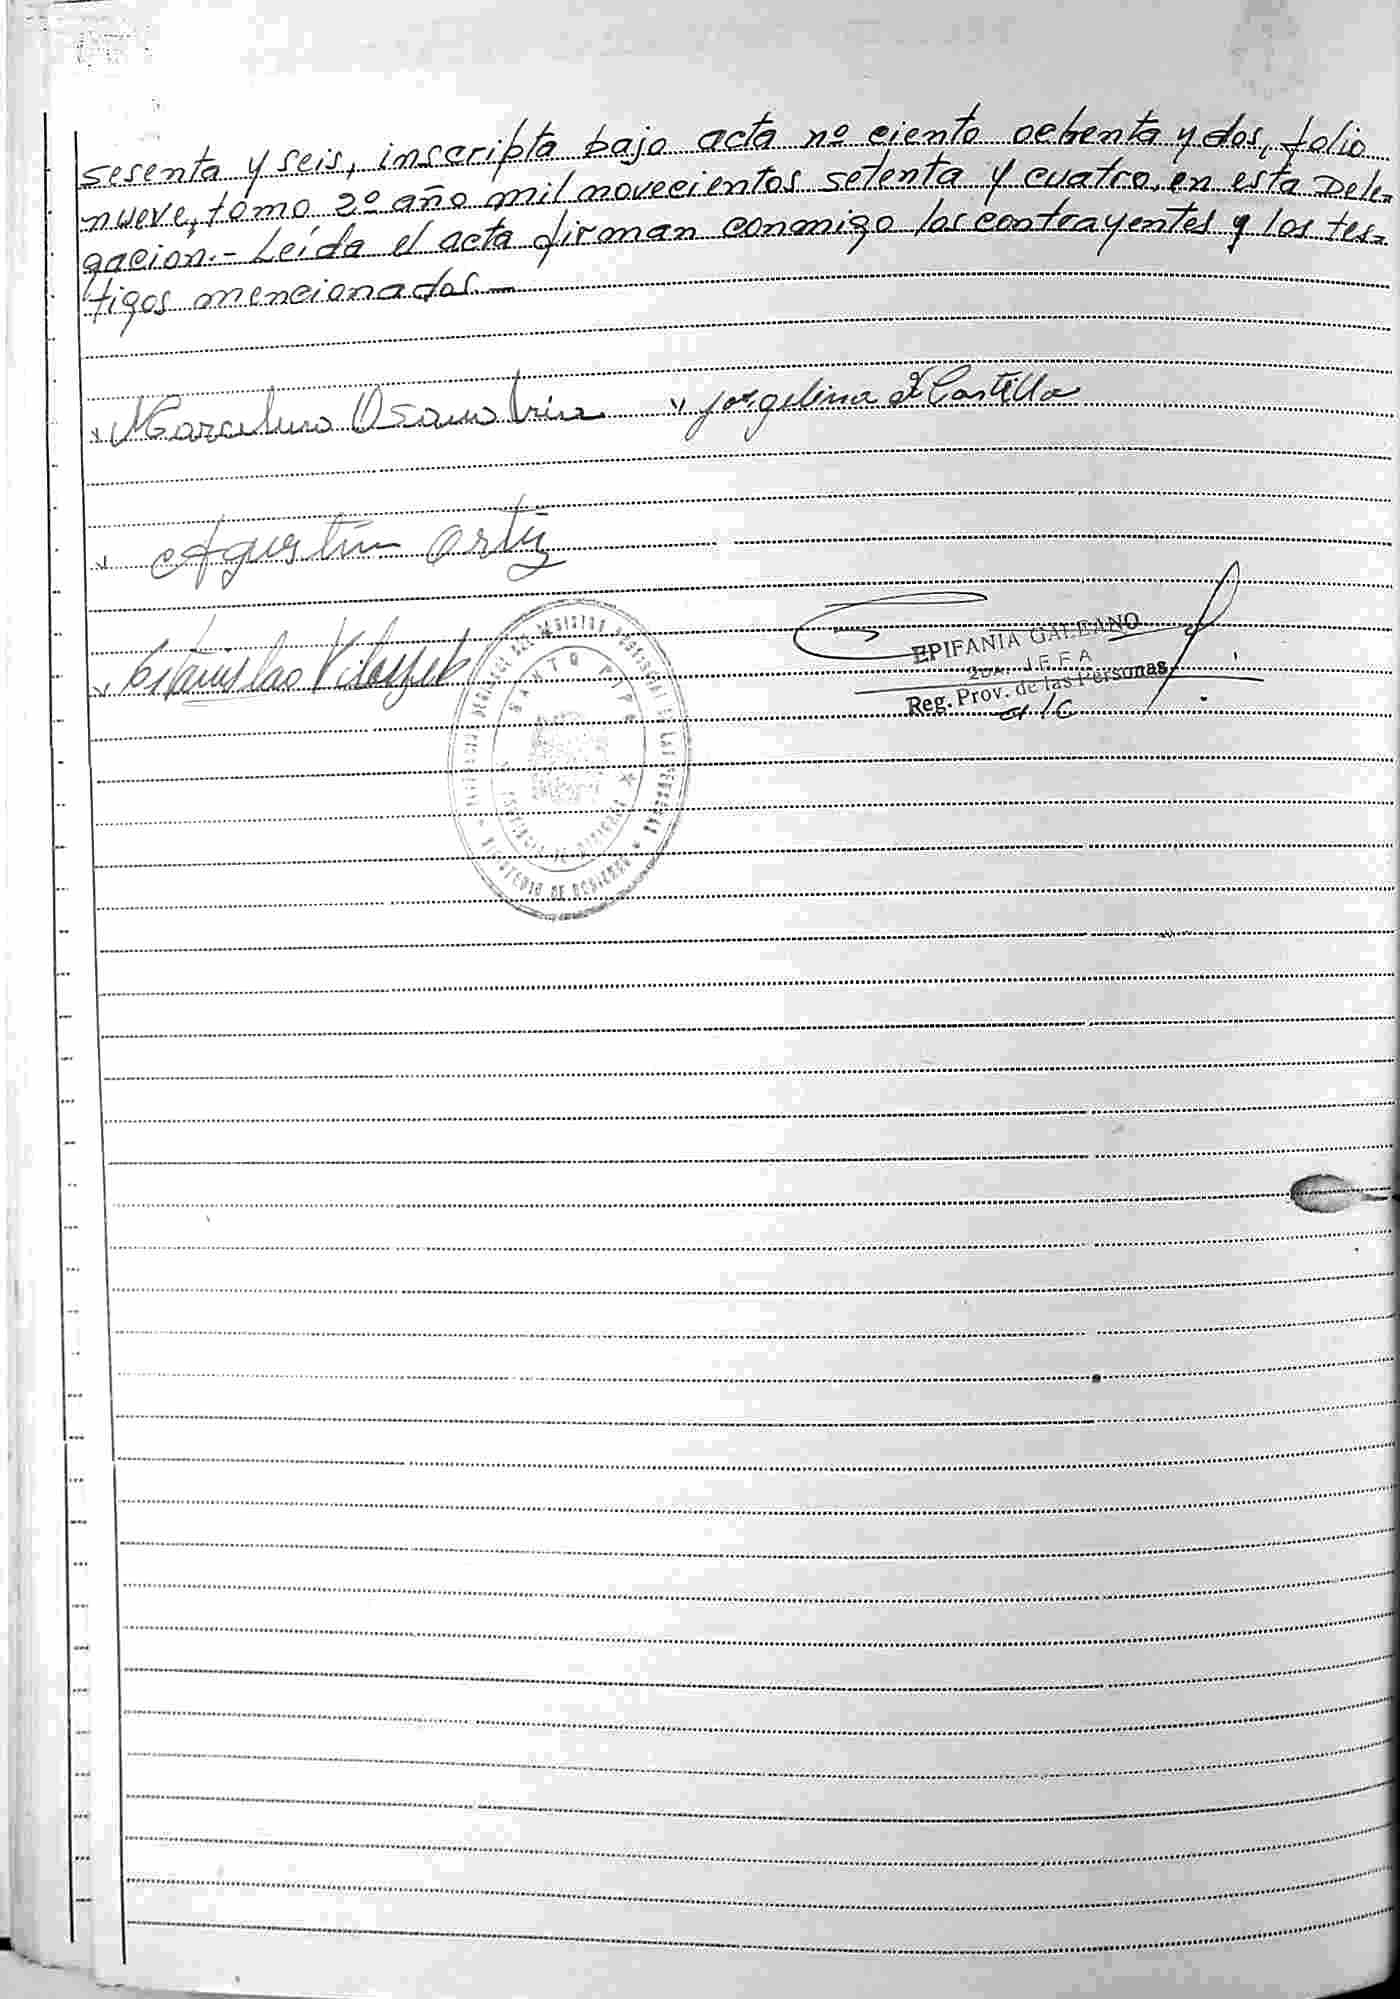 sesenta y seis, inscripta bajo acta nº ciento ochenta y dos, folio
nueve, tomo 2º año mil novecientos setenta y cuatro, en esta Dele-
gación.- Leída el acta firman conmigo los contrayentes y los tes-
tigos mencionados.-
Marcelino jorgelina Castillo
Agustin Ortiz
Estanislao
SANTO PIPO
MINISTERIO DE GOBIERNO
EPIFANIA GALEANO
2DA. JEFA
Reg. Prov. de las Personas